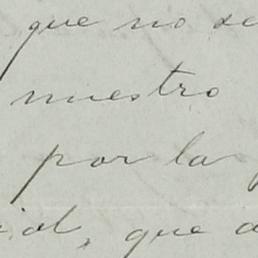 que no se
nuestro
por la
que